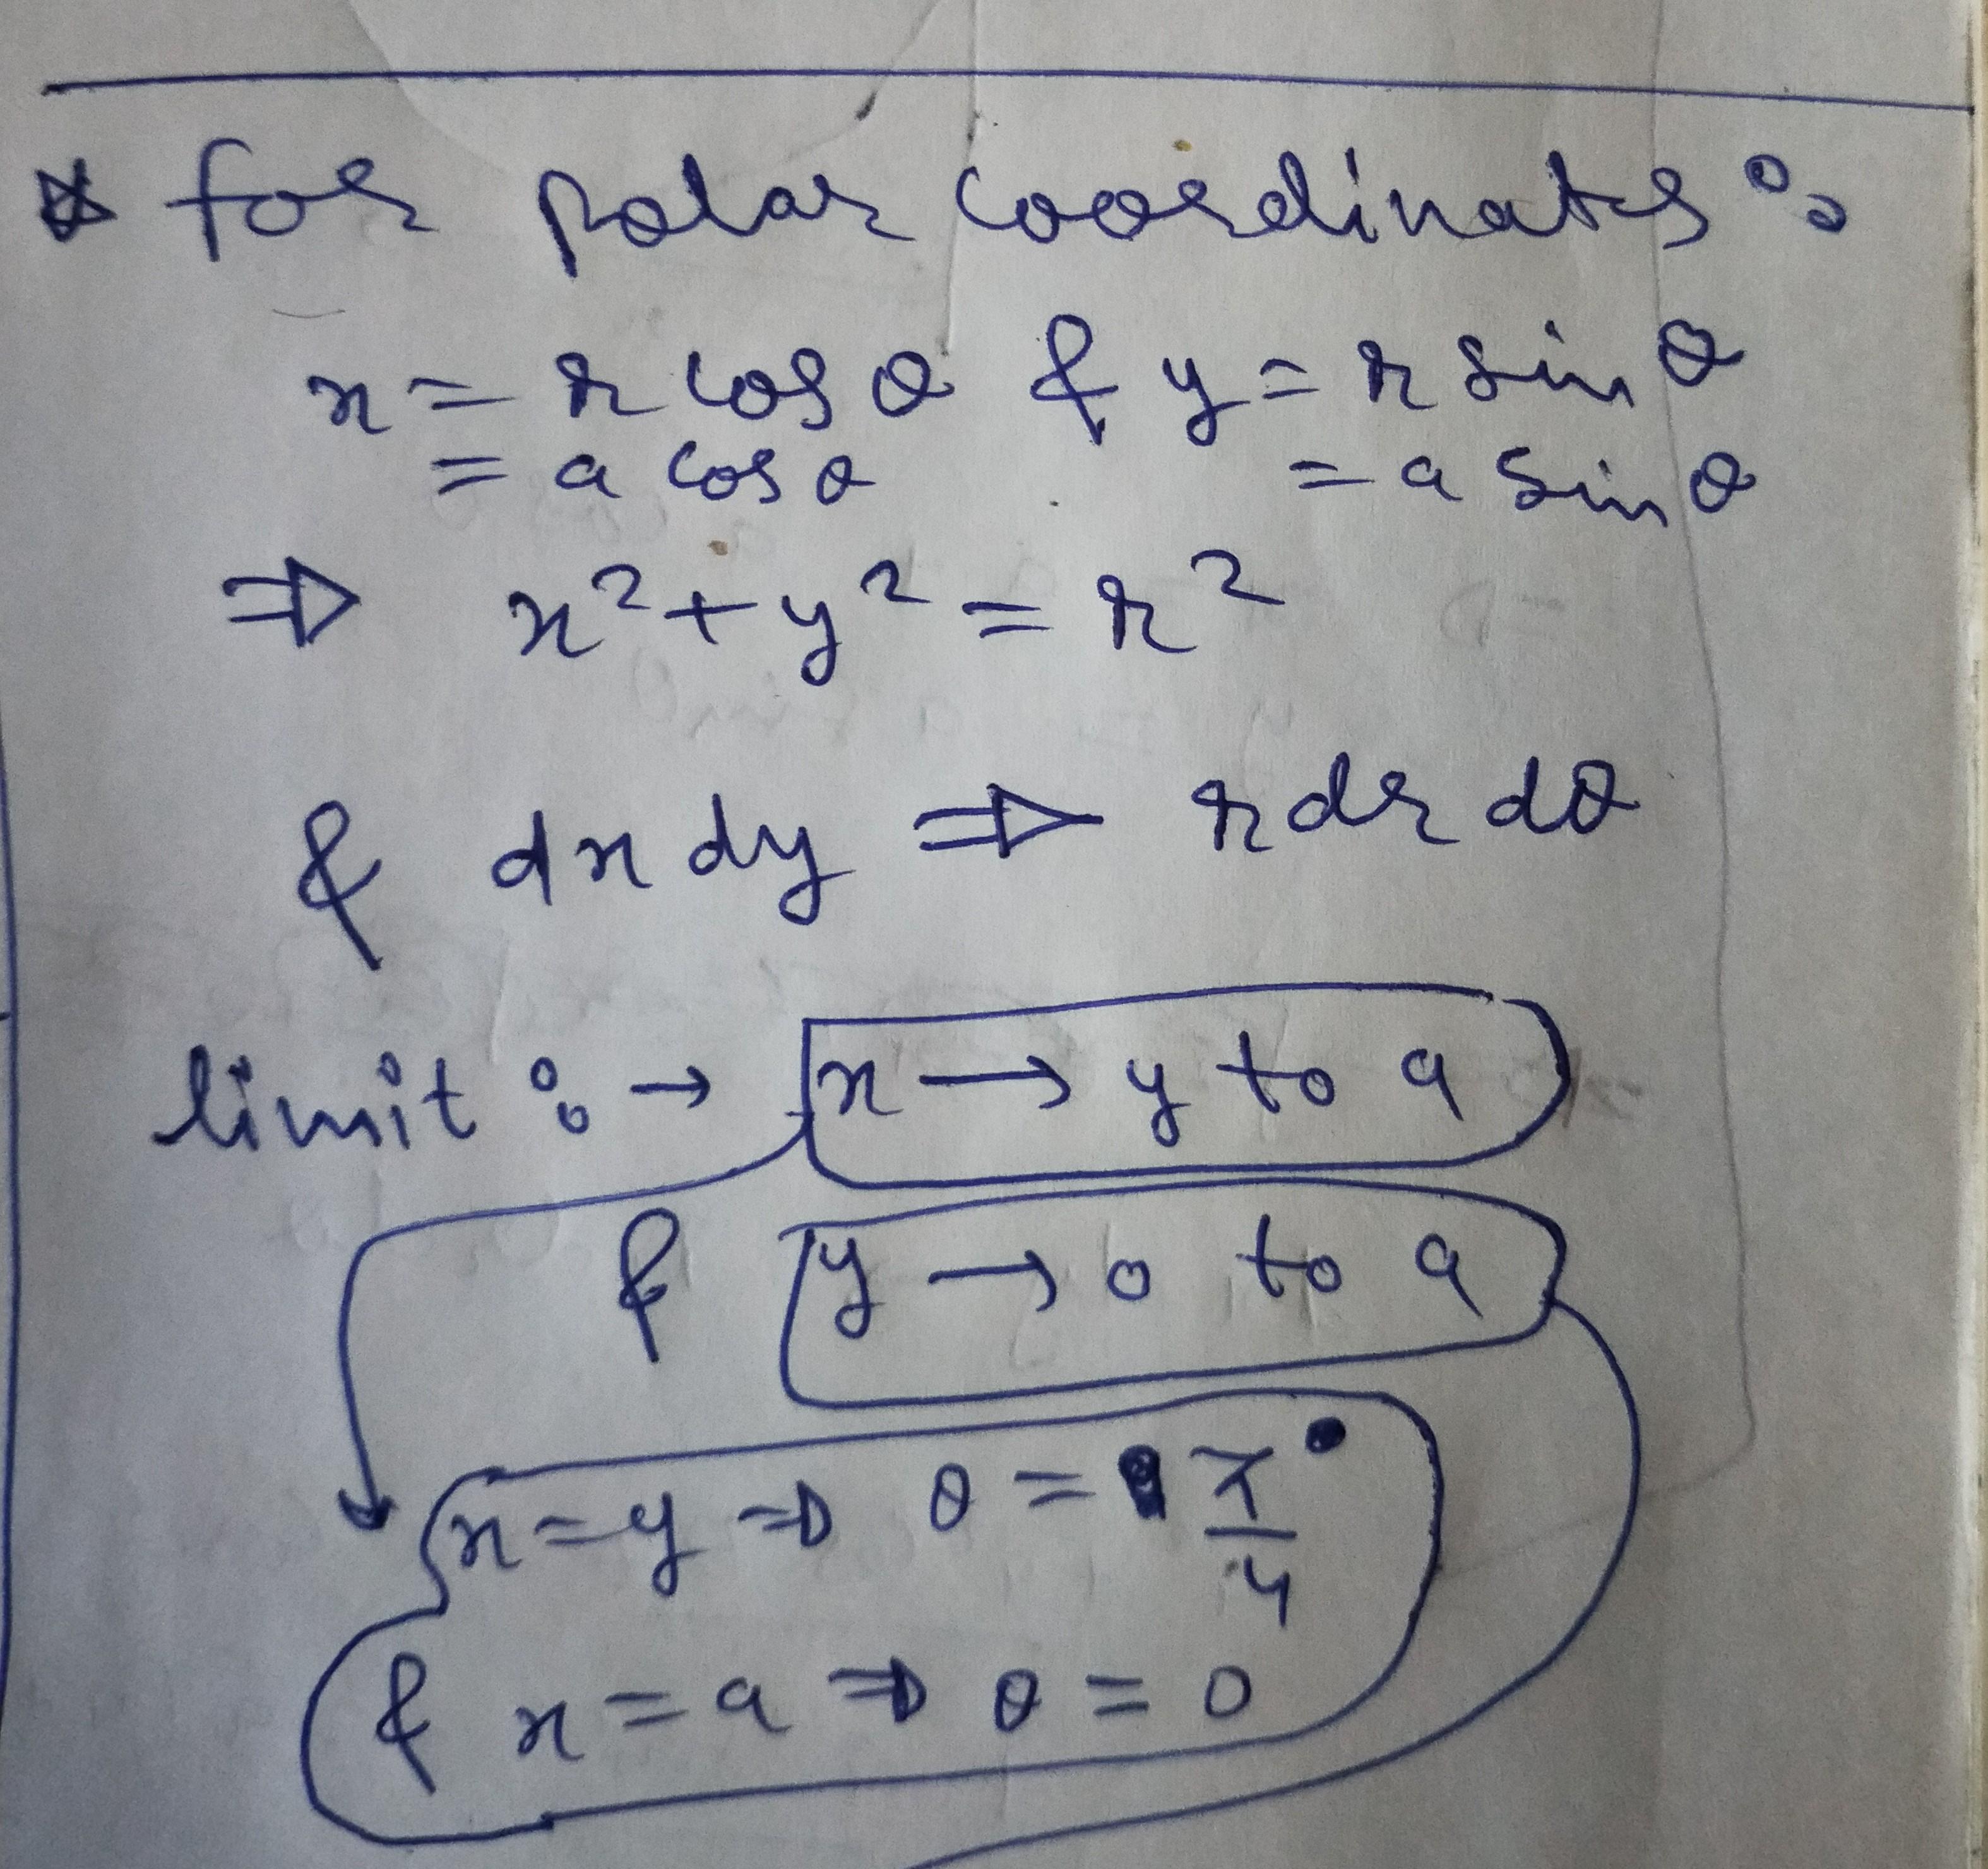 ☆ for polar coordinates :
x = r cos θ & y = r sin θ
= a cos θ = a sin θ
⇒ x² + y² = r²
& dx dy ⇒ r dr dθ
limit : → x → y to a
& y → 0 to a
x = y ⇒ θ = π/4
& x = a ⇒ θ = 0